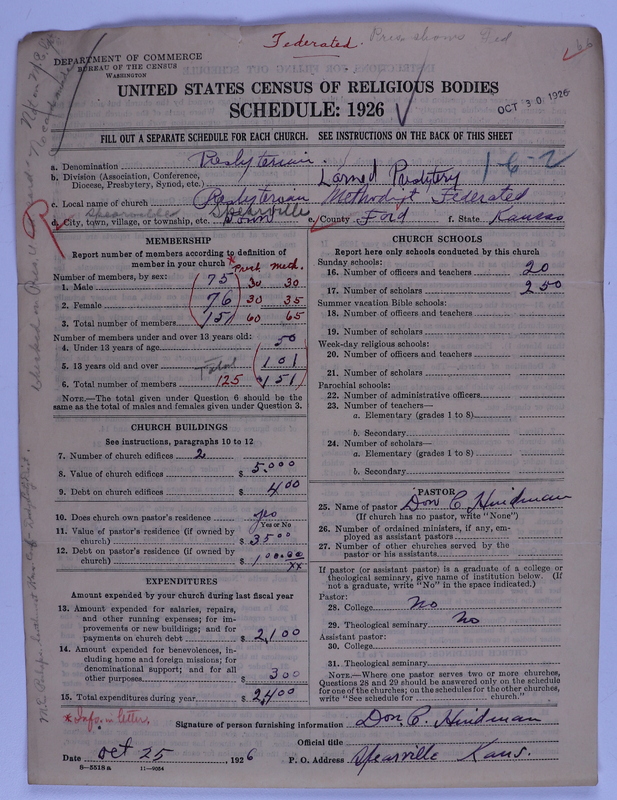 Federated.
DEPARTMENT OF COMMERCE
BUREAU OF THE CENSUS
WASHINGTON
UNITED STATES CENSUS OF RELIGIOUS BODIES
SCHEDULE: 1926
OCT 30 1926
FILL OUT A SEPARATE SCHEDULE FOR EACH CHURCH. SEE INSTRUCTIONS ON THE BACK OF THIS SHEET
a. Denomination Presbyterian.
1-6-2
b. Division (Association, Conference, Diocese, Presbytery, Synod, etc.) Larned Presbytery
c. Local name of church Presbyterian Methodist Federated
d. City, town, village, or township, etc. Spearville Spearville Town e. County Ford f. State Kansas
MEMBERSHIP
Report number of members according to definition of
member in your church * Presb. Meth.
Number of members, by sex:
1. Male 75 30 30
2. Female 76 30 35
3. Total number of members 151 60 65
Number of members under and over 13 years old:
4. Under 13 years of age 50
5. 13 years old and over 101
6. Total number of members 125 151
NOTE.—The total given under Question 6 should be
same as the total of males and females given under Question 3.
CHURCH BUILDINGS
See instructions, paragraphs 10 to 12
7. Number of church edifices 2
8. Value of church edifices $ 5.000
9. Debt on church edifices $ 400
10. Does church own pastor's residence yes
Yes or No
11. Value of pastor's residence (if owned by
church) $ 3500
12. Debt on pastor's residence (if owned by
church) $ 100.00
xx
EXPENDITURES
Amount expended by your church during last fiscal year
13. Amount expended for salaries, repairs,
and other running expenses; for im-
provements or new buildings; and for
payments on church debt $ 2,100
14. Amount expended for benevolences, in-
cluding home and foreign missions; for
denominational support; and for all
other purposes $ 300
15. Total expenditures during year $ 2,400
CHURCH SCHOOLS
Report here only schools conducted by this church
Sunday schools:
16. Number of officers and teachers 20
17. Number of scholars 250
Summer vacation Bible schools:
18. Number of officers and teachers
19. Number of scholars
Week-day religious schools:
20. Number of officers and teachers
21. Number of scholars
Parochial schools:
22. Number of administrative officers
23. Number of teachers—
a. Elementary (grades 1 to 8)
b. Secondary
24. Number of scholars—
a. Elementary (grades 1 to 8)
b. Secondary
PASTOR
25. Name of pastor Don C Hindman
(If church has no pastor, write "None")
26. Number of ordained ministers, if any, em-
ployed as assistant pastors
27. Number of other churches served by the
pastor or his assistants
If pastor (or assistant pastor) is a graduate of a college or
theological seminary, give name of institution below. (If
not a graduate, write "No" in the space indicated.)
Pastor:
28. College No
29. Theological seminary No
Assistant pastor:
30. College
31. Theological seminary
NOTE.—Where one pastor serves two or more churches,
Questions 28 and 29 should be answered only on the schedule
for one of the churches; on the schedules for the other churches,
write "See schedule for church."
* Info. in letter.
Signature of person furnishing information Don. C. Hindman
Official title
Date Oct 25, 1926 P. O. Address Spearville Kans.
8—5518a 11—9054